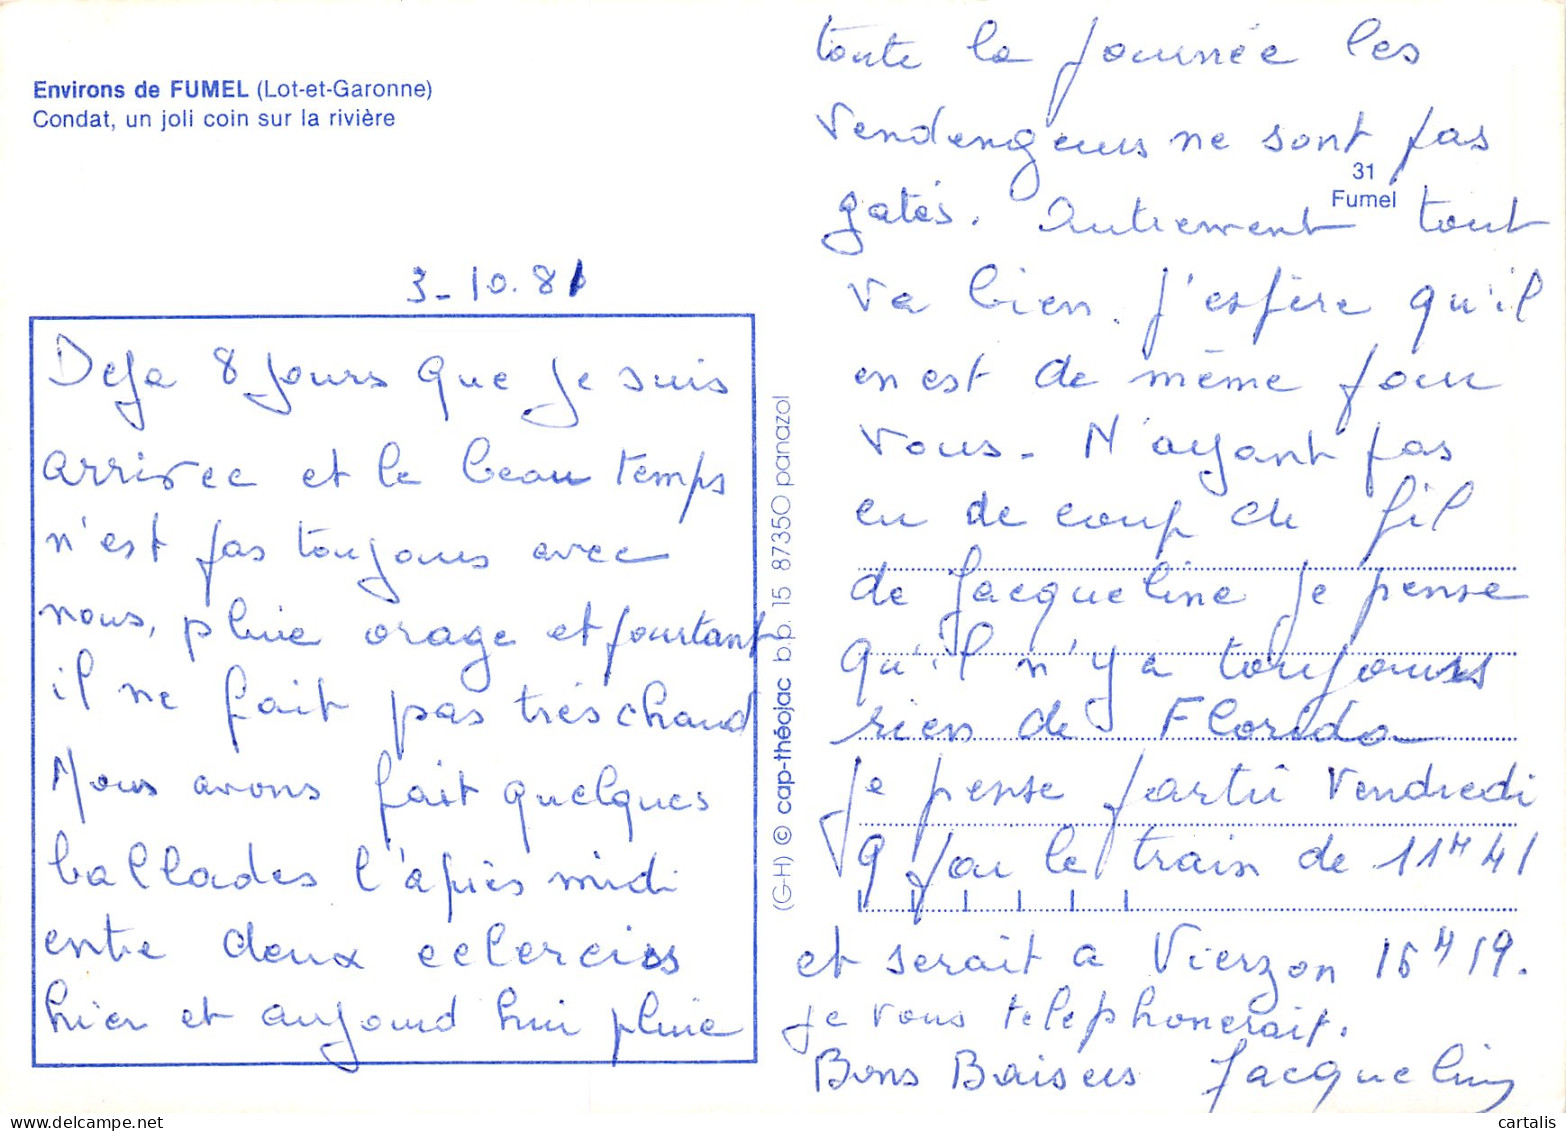 Environs de FUMEL (Lot-et-Garonne)
Condat, un joli coin sur la rivière
3-10.81
Deja 8 jours que je suis
arrivee et le beau temps
n'est pas toujours avec
nous, pluie orage et pourtant
il ne fait pas très chaud
Nous avons fait quelques
ballades l'après midi
entre deux eclercies
hier et aujourd hui pluie
(G-H) © cap-théojac b.p. 15 87350 panazol
toute la journée les
vendengeurs ne sont pas
31
Fumel
gatés. Autrement tout
va bien. J'espère qu'il
en est de même pour
vous. N'ayant pas
eu de coup de fil
de Jacqueline je pense
qu'il n'y a toujours
rien de Florida
Je pense partir vendredi
9 par le train de 11H41
et serait a Vierzon 16H19.
je vous telephonerait.
Bons Baisers Jacqueline
cartalis